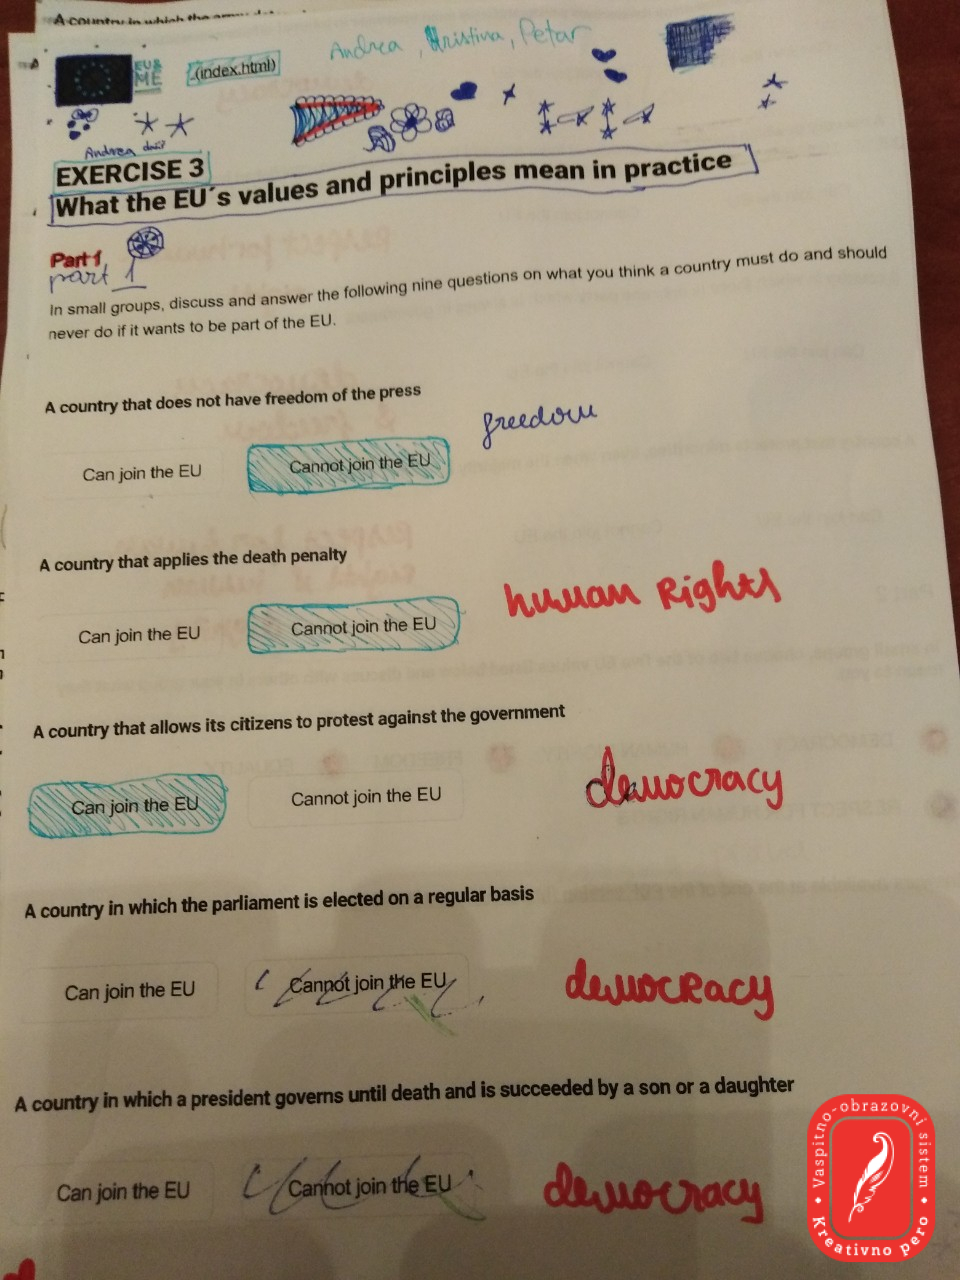 A country in which the
Andrea, Kristina, Petar
EU&
ME
(index.html)
Andrea
EXERCISE 3
What the EU´s values and principles mean in practice
Part 1
part 1
In small groups, discuss and answer the following nine questions on what you think a country must do and should
never do if it wants to be part of the EU.
A country that does not have freedom of the press
freedom
Can join the EU
Cannot join the EU
A country that applies the death penalty
human Rights
Can join the EU
Cannot join the EU
A country that allows its citizens to protest against the government
democracy
Can join the EU
Cannot join the EU
A country in which the parliament is elected on a regular basis
Can join the EU
Cannot join the EU
democracy
A country in which a president governs until death and is succeeded by a son or a daughter
Can join the EU
Cannot join the EU
democracy
Vaspitno-obrazovni sistem
Kreativno pero